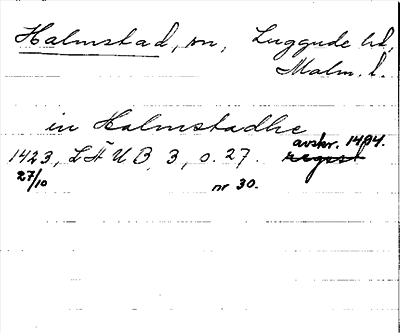 Halmstad, sn, Luggude hd,
Malm. l.
in Halmstadhe
avskr. 1494.
1423, LÄUB, 3, o. 27. regest
27/10
nr 30.